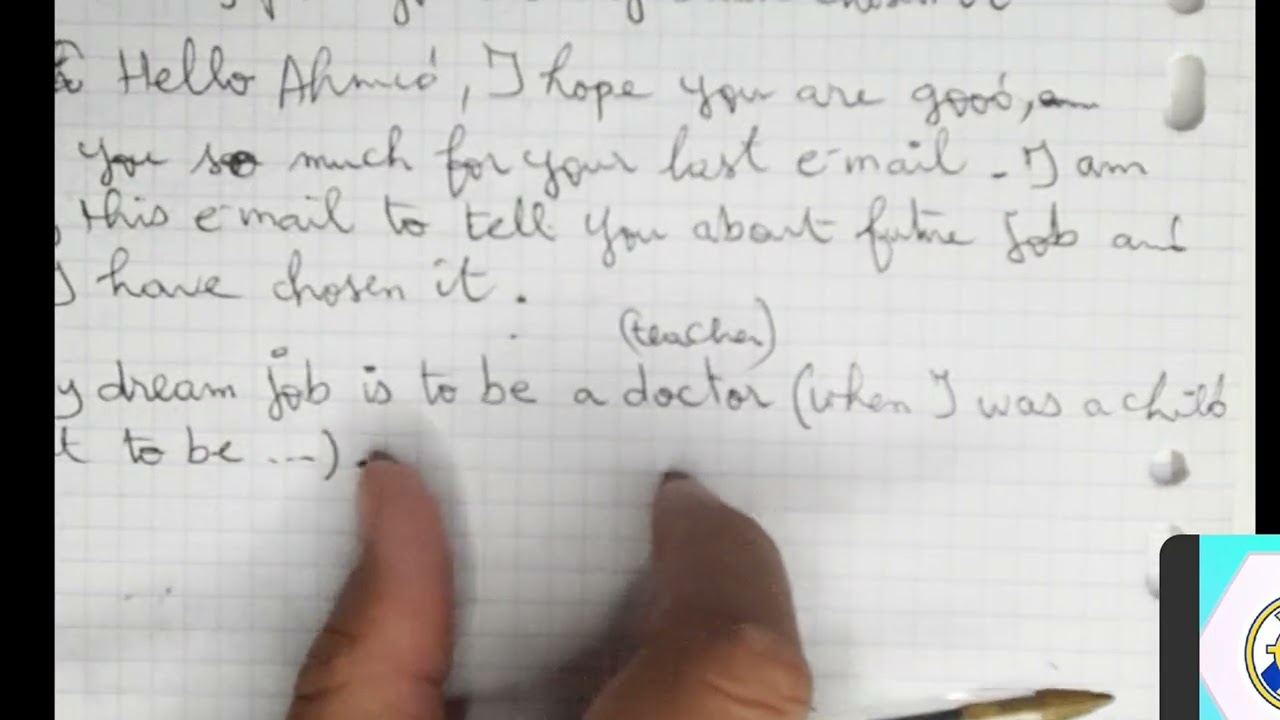 Hello Ahmed, I hope you are good,
you so much for your last e-mail - I am
this e-mail to tell you about future job and
I have chosen it.
(teacher)
y dream job is to be a doctor (when I was a child
t to be ...)